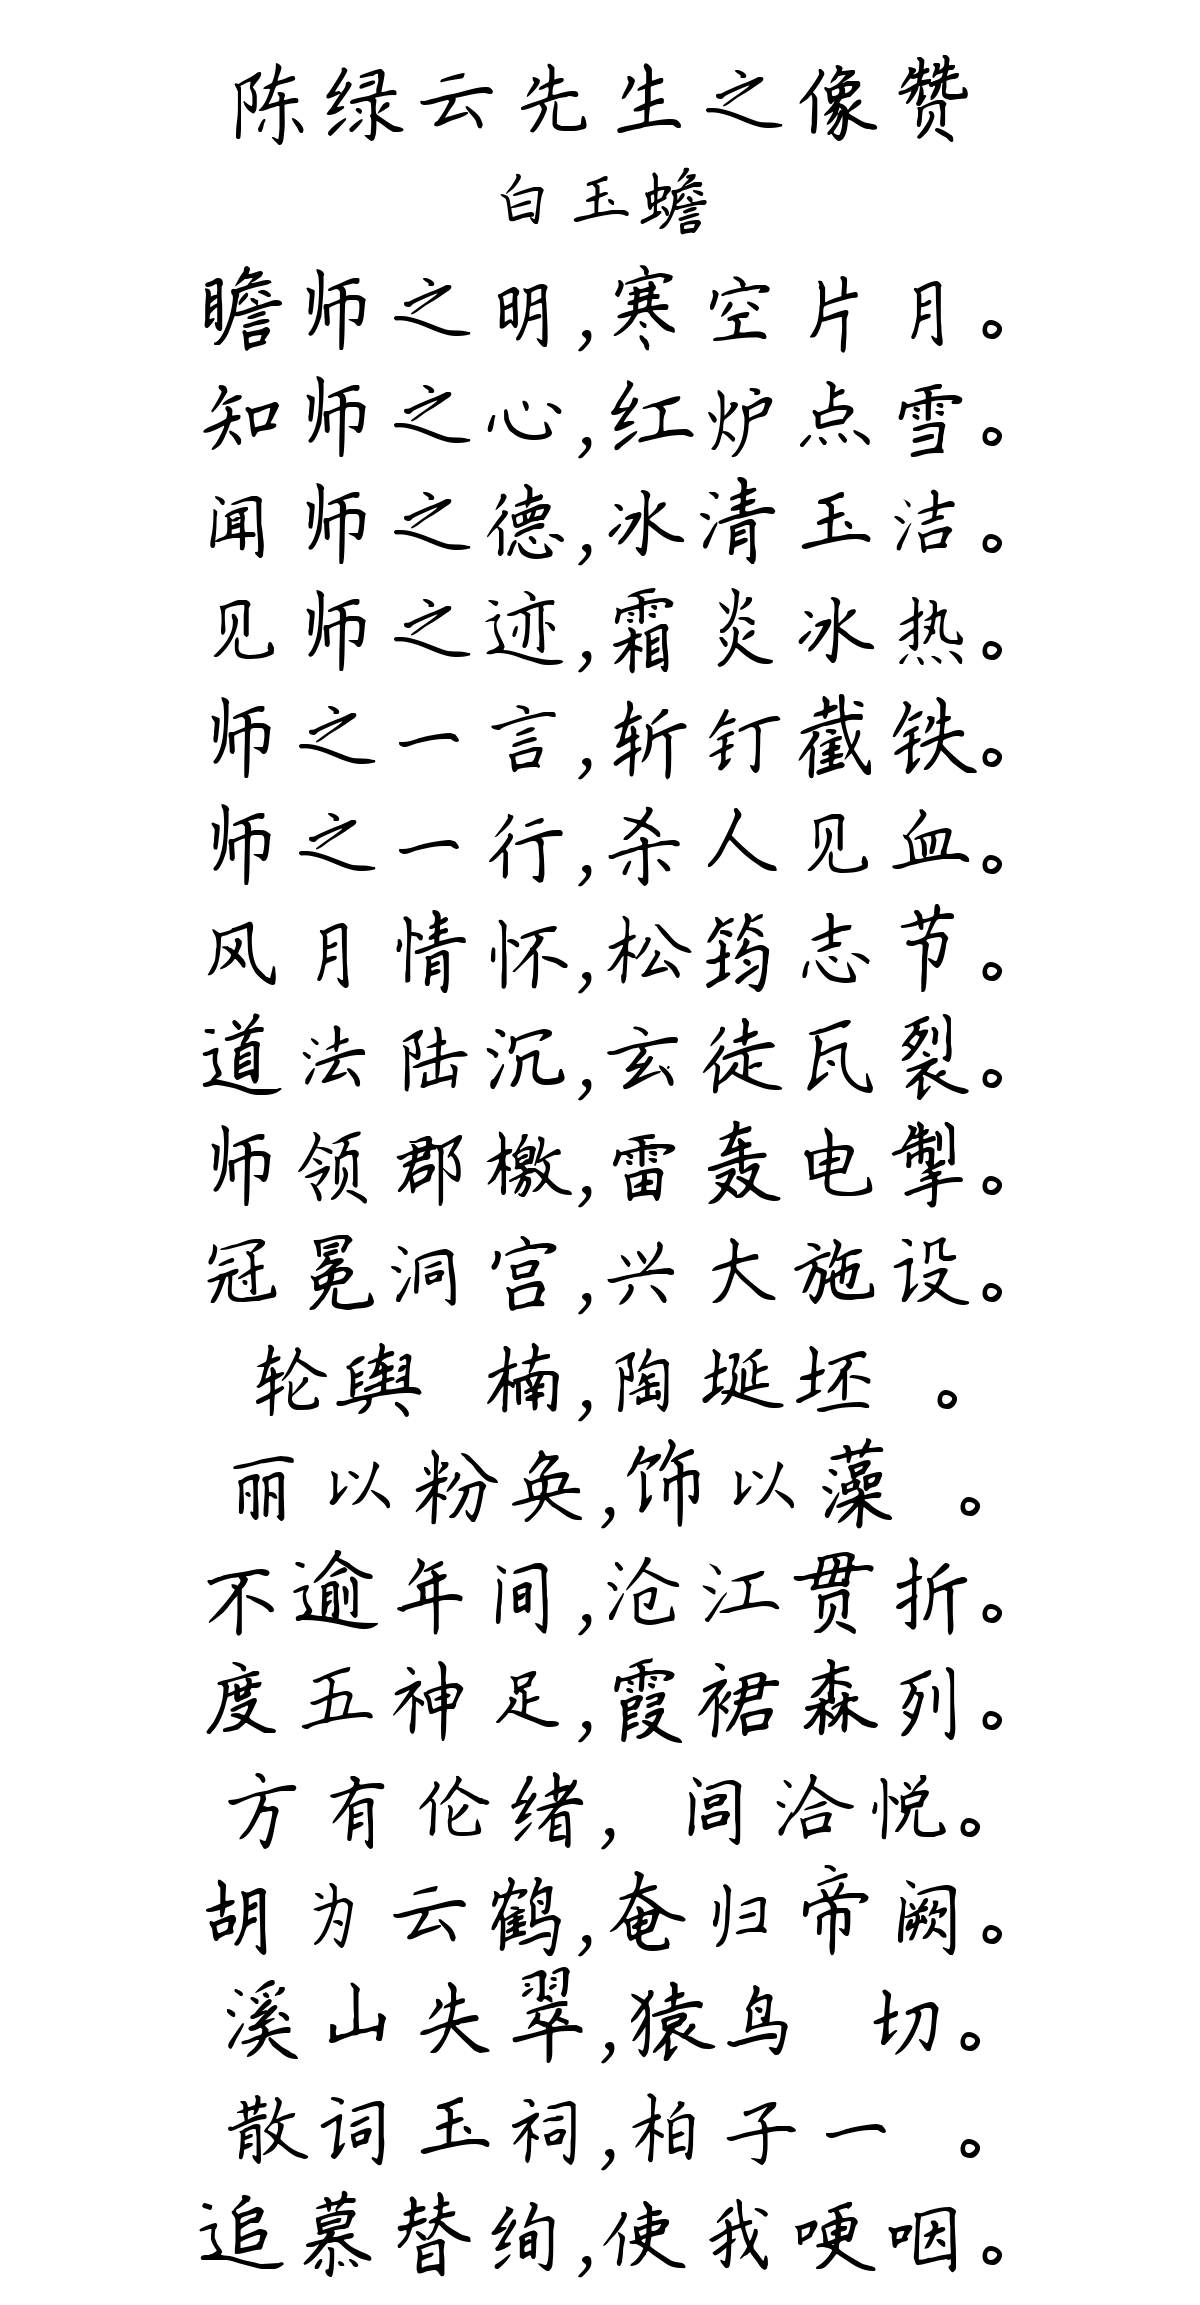 陈绿云先生之像赞
白玉蟾
瞻师之明,寒空片月。
知师之心,红炉点雪。
闻师之德,冰清玉洁。
见师之迹,霜炎冰热。
师之一言,斩钉截铁。
师之一行,杀人见血。
风月情怀,松筠志节。
道法陆沉,玄徒瓦裂。
师领郡檄,雷轰电掣。
冠冕洞宫,兴大施设。
轮舆 楠,陶埏坯 。
丽以粉奂,饰以藻 。
不逾年间,沧江贯折。
度五神足,霞裙森列。
方有伦绪, 闾洽悦。
胡为云鹤,奄归帝阙。
溪山失翠,猿鸟 切。
散词玉祠,柏子一 。
追慕替绚,使我哽咽。